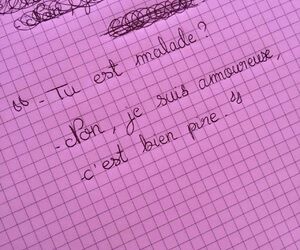 " - Tu est malade ?
- Non, je suis amoureuse,
c'est bien pire. "